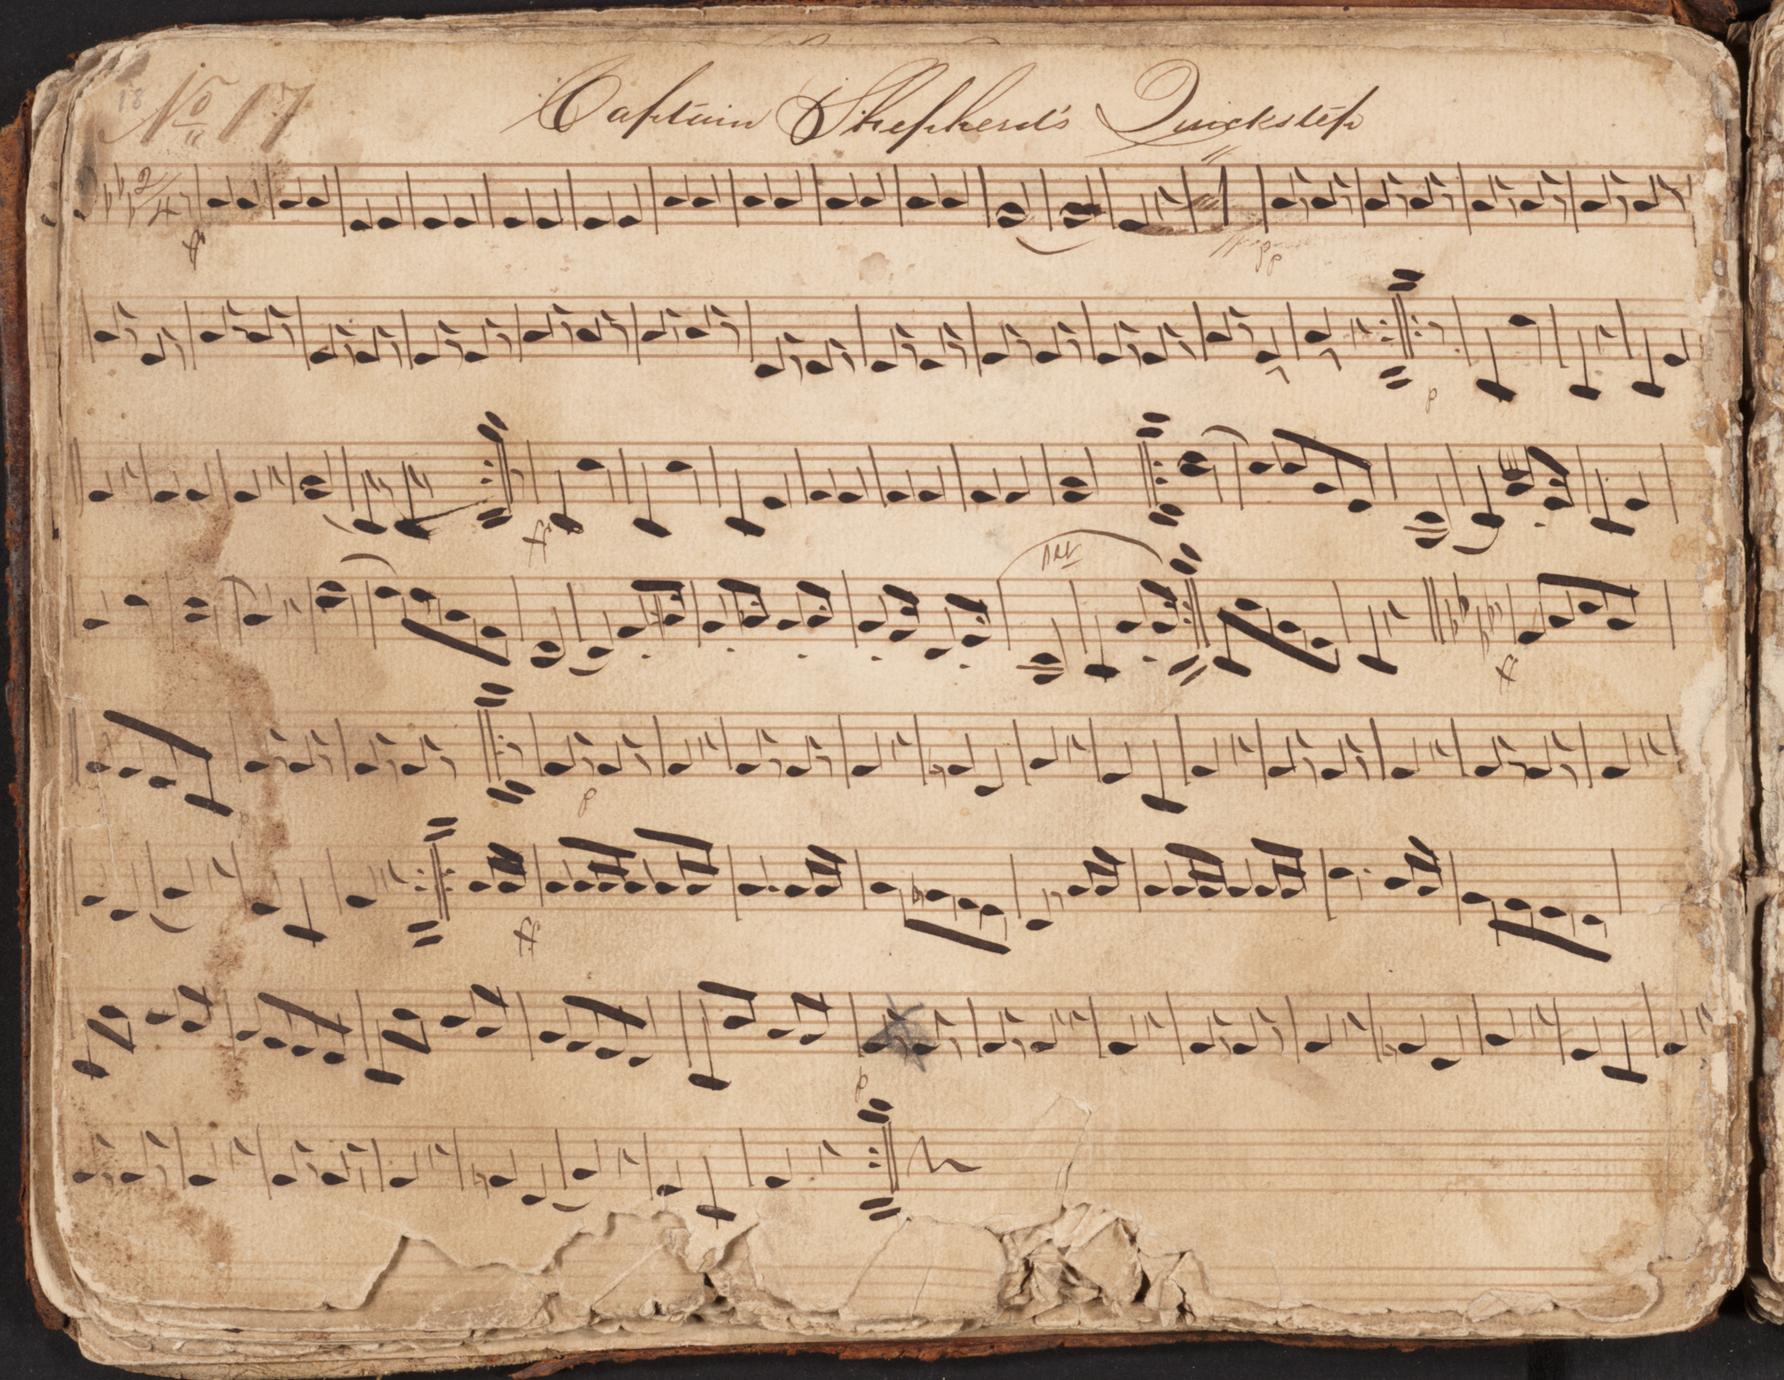 18
No 17 Captain Shepherd's Quickstep
2/4
ff
pp
p
ff
ff
p
ff
p